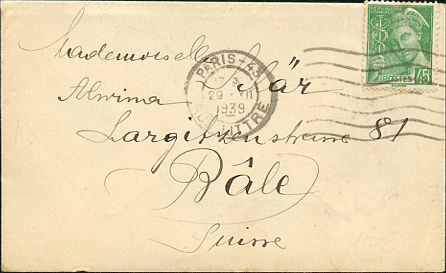 Mademoiselle
Alwina Bär
Largitzenstrasse 81
Bâle
Suisse
PARIS-43
29 VII
1939
R. LITTRE
45
POSTES